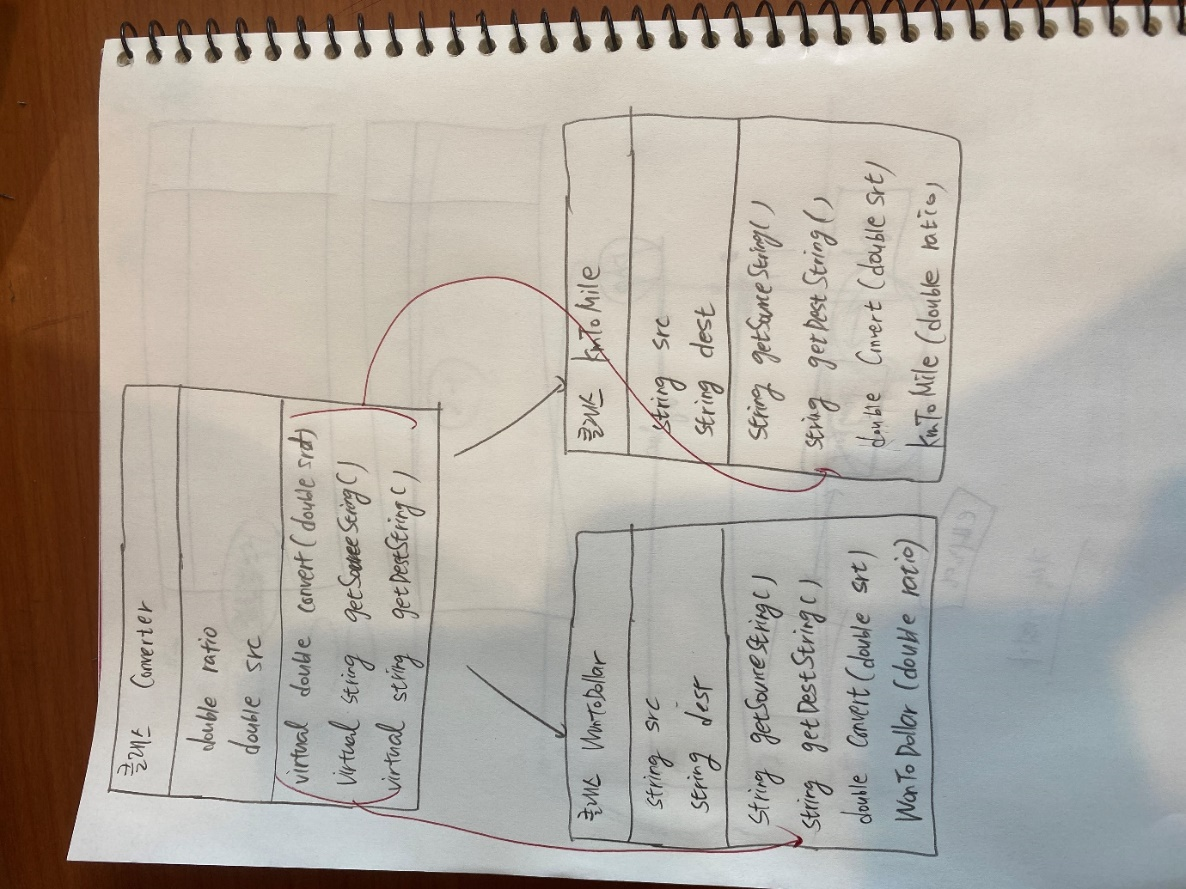 클래스 Converter
double ratio
double src
virtual double convert (double src)
virtual string getSourceString()
virtual string getDestString()
클래스 WonToDollar
string src
string dest
string getSourceString()
string getDestString()
double Convert (double srt)
WonToDollar (double ratio)
클래스 kmToMile
string src
string dest
string getSourceString()
string getDestString()
double Convert (double srt)
kmToMile (double ratio)